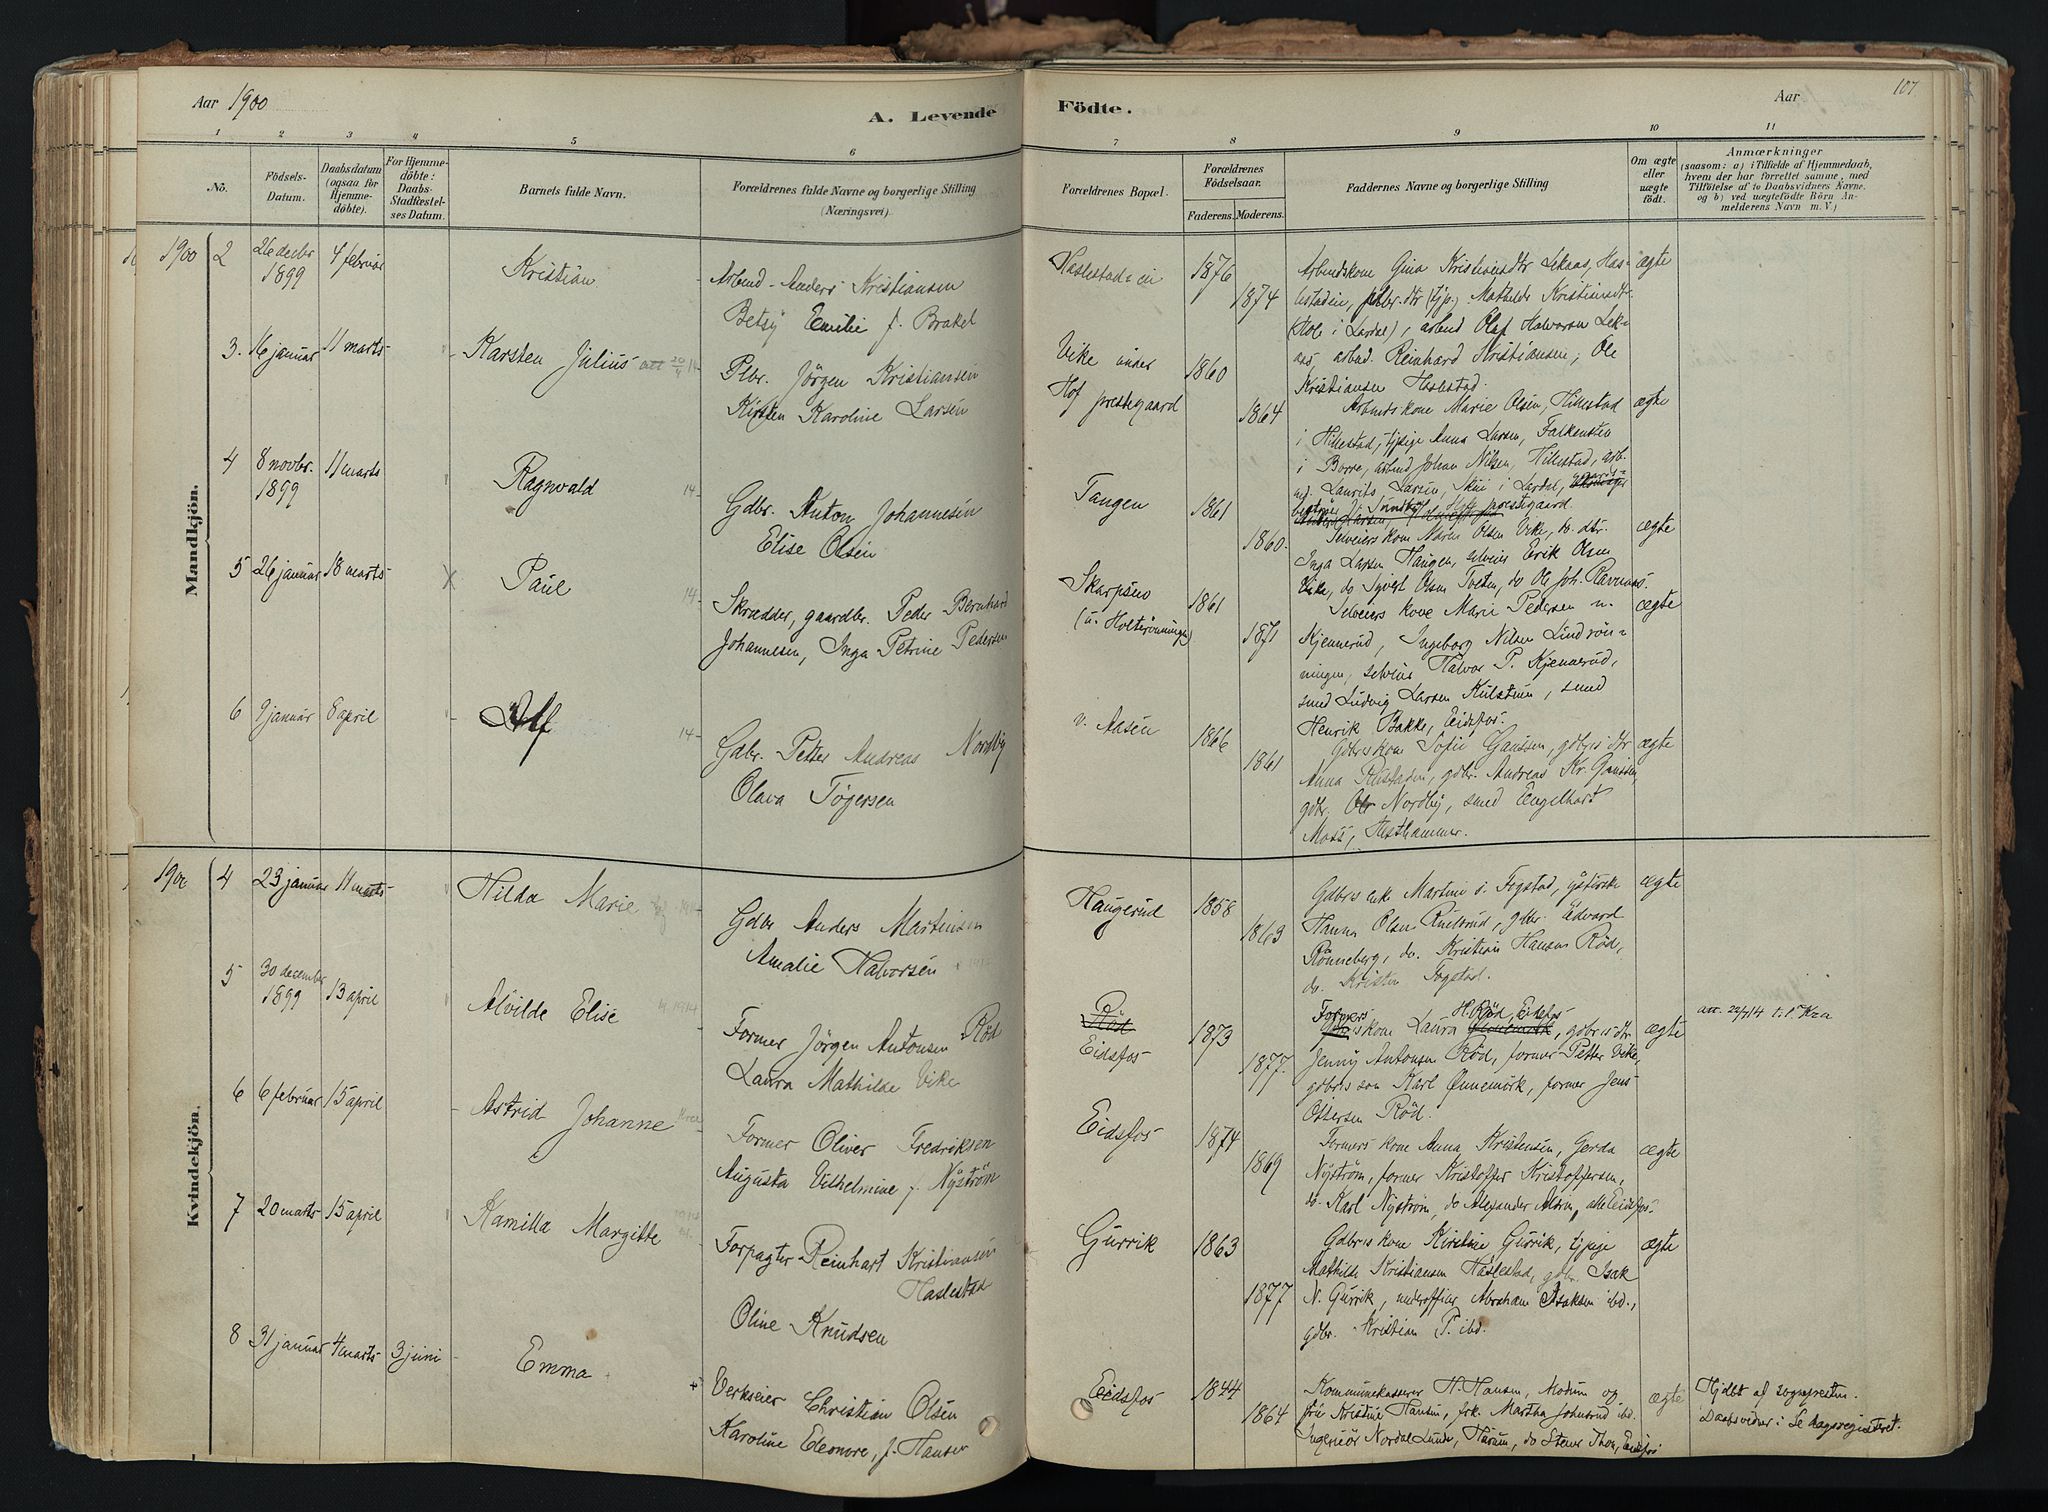 Aar 1900
A. Levende
Födte.
Aar
107
1 2 3 4 5 6 7 8 9 10 11
No.
Födsels-
Datum.
Daabsdatum
(ogsaa for
Hjemme-
döbte).
For Hjemme-
döbte:
Daabs-
Stadfæstel-
ses Datum.
Barnets fulde Navn.
Forældrenes fulde Navne og borgerlige Stilling
(Næringsvei).
Forældrenes Bopæl.
Forældrenes
Födselsaar.
Faderens. Moderens.
Faddernes Navne og borgerlige Stilling
Om ægte
eller
uægte
födt.
Anmærkninger
(saasom: a) i Tilfælde af Hjemmedaab,
hvem der har forrettet samme, med
Tilföielse af to Daabsvidners Navne.
og b) ved uægtefödte Börn An-
melderens Navn m. V.)
Mandkjön.
1900 2 26 decbr 1899 4 februar
Kristian
Arbmd. Anders Kristiansen
Betsy Emilie f. Brakel
Haslestadeie
1876
1874
Arbmdskone Gina Kristiansdtr Lekaas, Has-
lestadeie, plbr. dtr (tjp.) Mathilde Kristiansdtr.
(Hole i Lardal), arbmd Olaf Halvorsen Lek-
aas, arbmd. Reinhard Kristiansen, Ole
Kristiansen Haslestad.
ægte
3. 16 januar 11 marts
Karsten Julius
Plbr. Jörgen Kristiansen
Kirsten Karoline Larsen
Vike under
Hof prestegaard
1860
1864
Arbmdskone Marie Olsen, Hillestad
i Hillestad, tjpige Anna Larsen, Falkensten
i Borre, arbmd Johan Nilsen, Hillestad, arb-
md. Laurits Larsen, Skui i Lardal,
prestegaard.
ægte
4 8 novbr. 1899 11 marts
Ragnvald 14
Gdbr. Anton Johannesen
Elise Olsen
Tangen
1861
1860.
Selveiers kone Maren Olsen Vike, do. dtr.
Inga Larsen Haugen, selveier Erik Olsen
Vike, do Syvert Olsen Tveten, do Ole Joh. Ravnaas.
ægte
5 26 januar 18 marts X
Paul 14
Skrædder, gaardbr. Peder Bernhard
Johannesen, Inga Petrine Pedersen
Skarpsno
(u. Holterönningen)
1861
1871
Selveiers kone Marie Pedersen u.
Kjennerud, Ingeborg Nilsen Lindrön-
ningen, selveier Halvor P. Kjennerud,
smed Ludvig Larsen Kulstuen, smed
Henrik Bakke, Eidsfos.
ægte
6 9 januar 8 april
Alf 14
Gdbr. Petter Andreas Nordby
Olava Tögersen
v. Aasen
1866
1861
Gdbrs kone Sofie Ganssen, gdbrs dtr
Anna Rustaden, gdbr. Andreas Kr. Ganssen,
gdbr. Nordby, smed Engelhart
Moss, Hesthammer.
ægte
Kvindekjön.
1900 4 23 januar 11 marts
Hilda Marie
Gdbr Anders Martinsen
Amalie Halvorsen
Haugerud
1858
1863
Gdbrs enke Martine s. Fogstad, tjenerske
Hanna Olsen Ruelsrud, gdbr. Edvard
Rönneberg, do. Kristian Hansen Röd,
do. Kristen Fogstad.
ægte
5 30 december 1899 13 april
Alvilde Elise 1914
Former Jörgen Antonsen Röd
Laura Mathilde Vike
Röd
Eidsfos
1873
1877.
Formers kone Laura H. Röd, Eidsfos, gdbrs dtr.
Jenny Antonsen Röd, former Petter Vike,
gdbrs sön Karl Önnemörk, former Jens
Ottersen Röd.
ægte
att. 22/7 14 til Kra
6 6 februar 15 april
Astrid Johanne
Former Oliver Fredriksen
Augusta Vilhelmine f. Nyström
Eidsfos
1874
1869
Formers kone Anna Kristensen, Gerda
Nyström, former Kristoffer Kristoffersen,
do. Karl Nyström, do Alexander Alsén, alle Eidsfos.
ægte
7 20 marts 15 april
Kamilla Margitte
Forpagter Reinhart Kristiansen
Haslestad
Oline Knudsen
Gurrik
1863
1877
Gdbrs kone Kirstine Gurrik, tjpige
Mathilde Kristiansen Haslestad, gdbr. Isak
N. Gurrik, underofficer Abraham Isaksen ibd.,
gdbr. Kristian P. ibd.
ægte
8 31 januar 4 marts 3 juni
Emma
Verkseier Christian Olsen
Karoline Eleonore, f. Hansen
Eidsfos
1844
1864
Kommunekasserer H. Hansen, Modum og
frue Kristine Hansen, frk. Martha Johnsrud ibd.
Ingeniör Nordal Lunde, Harum, do Stener Thon, Eidsfos
ægte
Hjdbt af sognepresten.
Daabsvidner: Se dagsregisteret.